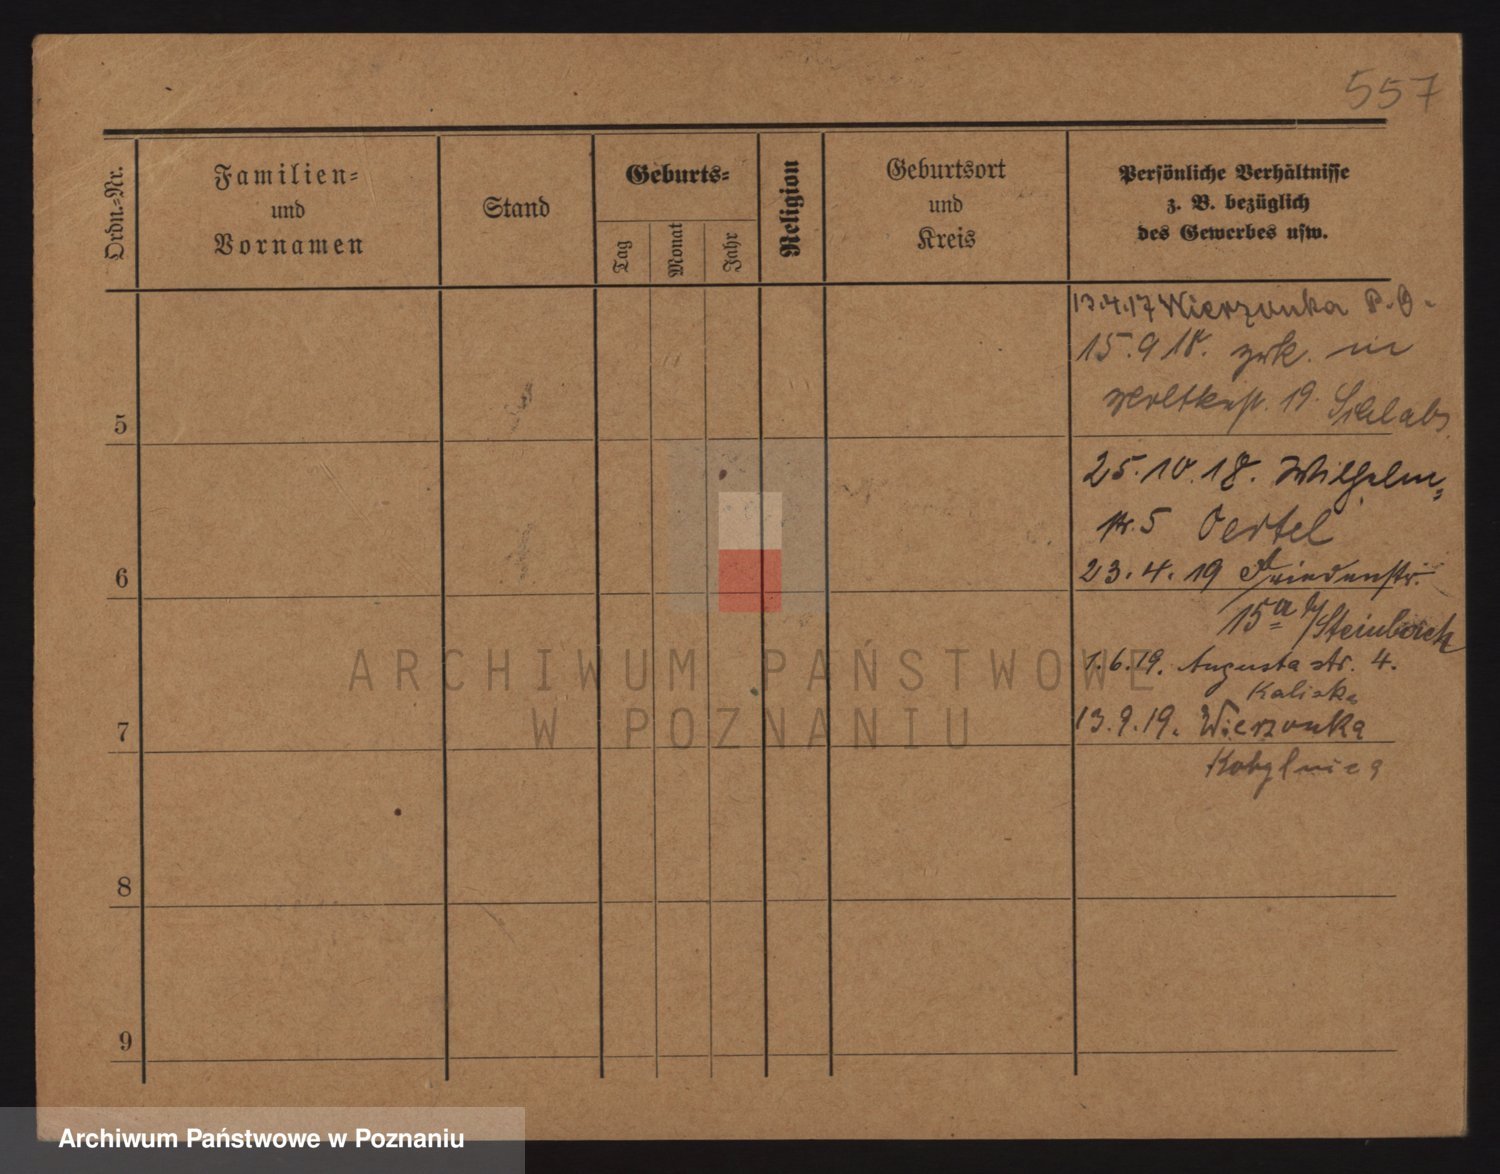 557
Ordn.-Nr.
Familien-
und
Vornamen
Stand
Geburts-
Tag
Monat
Jahr
Religion
Geburtsort
und
Kreis
Persönliche Verhältnisse
z. B. bezüglich
des Gewerbes usw.
13.4.17 Wierzonka P. O.
15.9.18. zrk. in
Moltkestr. 19.
5
25.10.18. Wilhelm-
str. 5 Oertel
23.4.19 Friedenstr.
6
15a b/Steinbock
1.6.19. Augusta str. 4.
Kaliska
13.9.19. Wierzonka
7
Kobylnica
8
9
ARCHIWUM PAŃSTWOWE
W POZNANIU
Archiwum Państwowe w Poznaniu